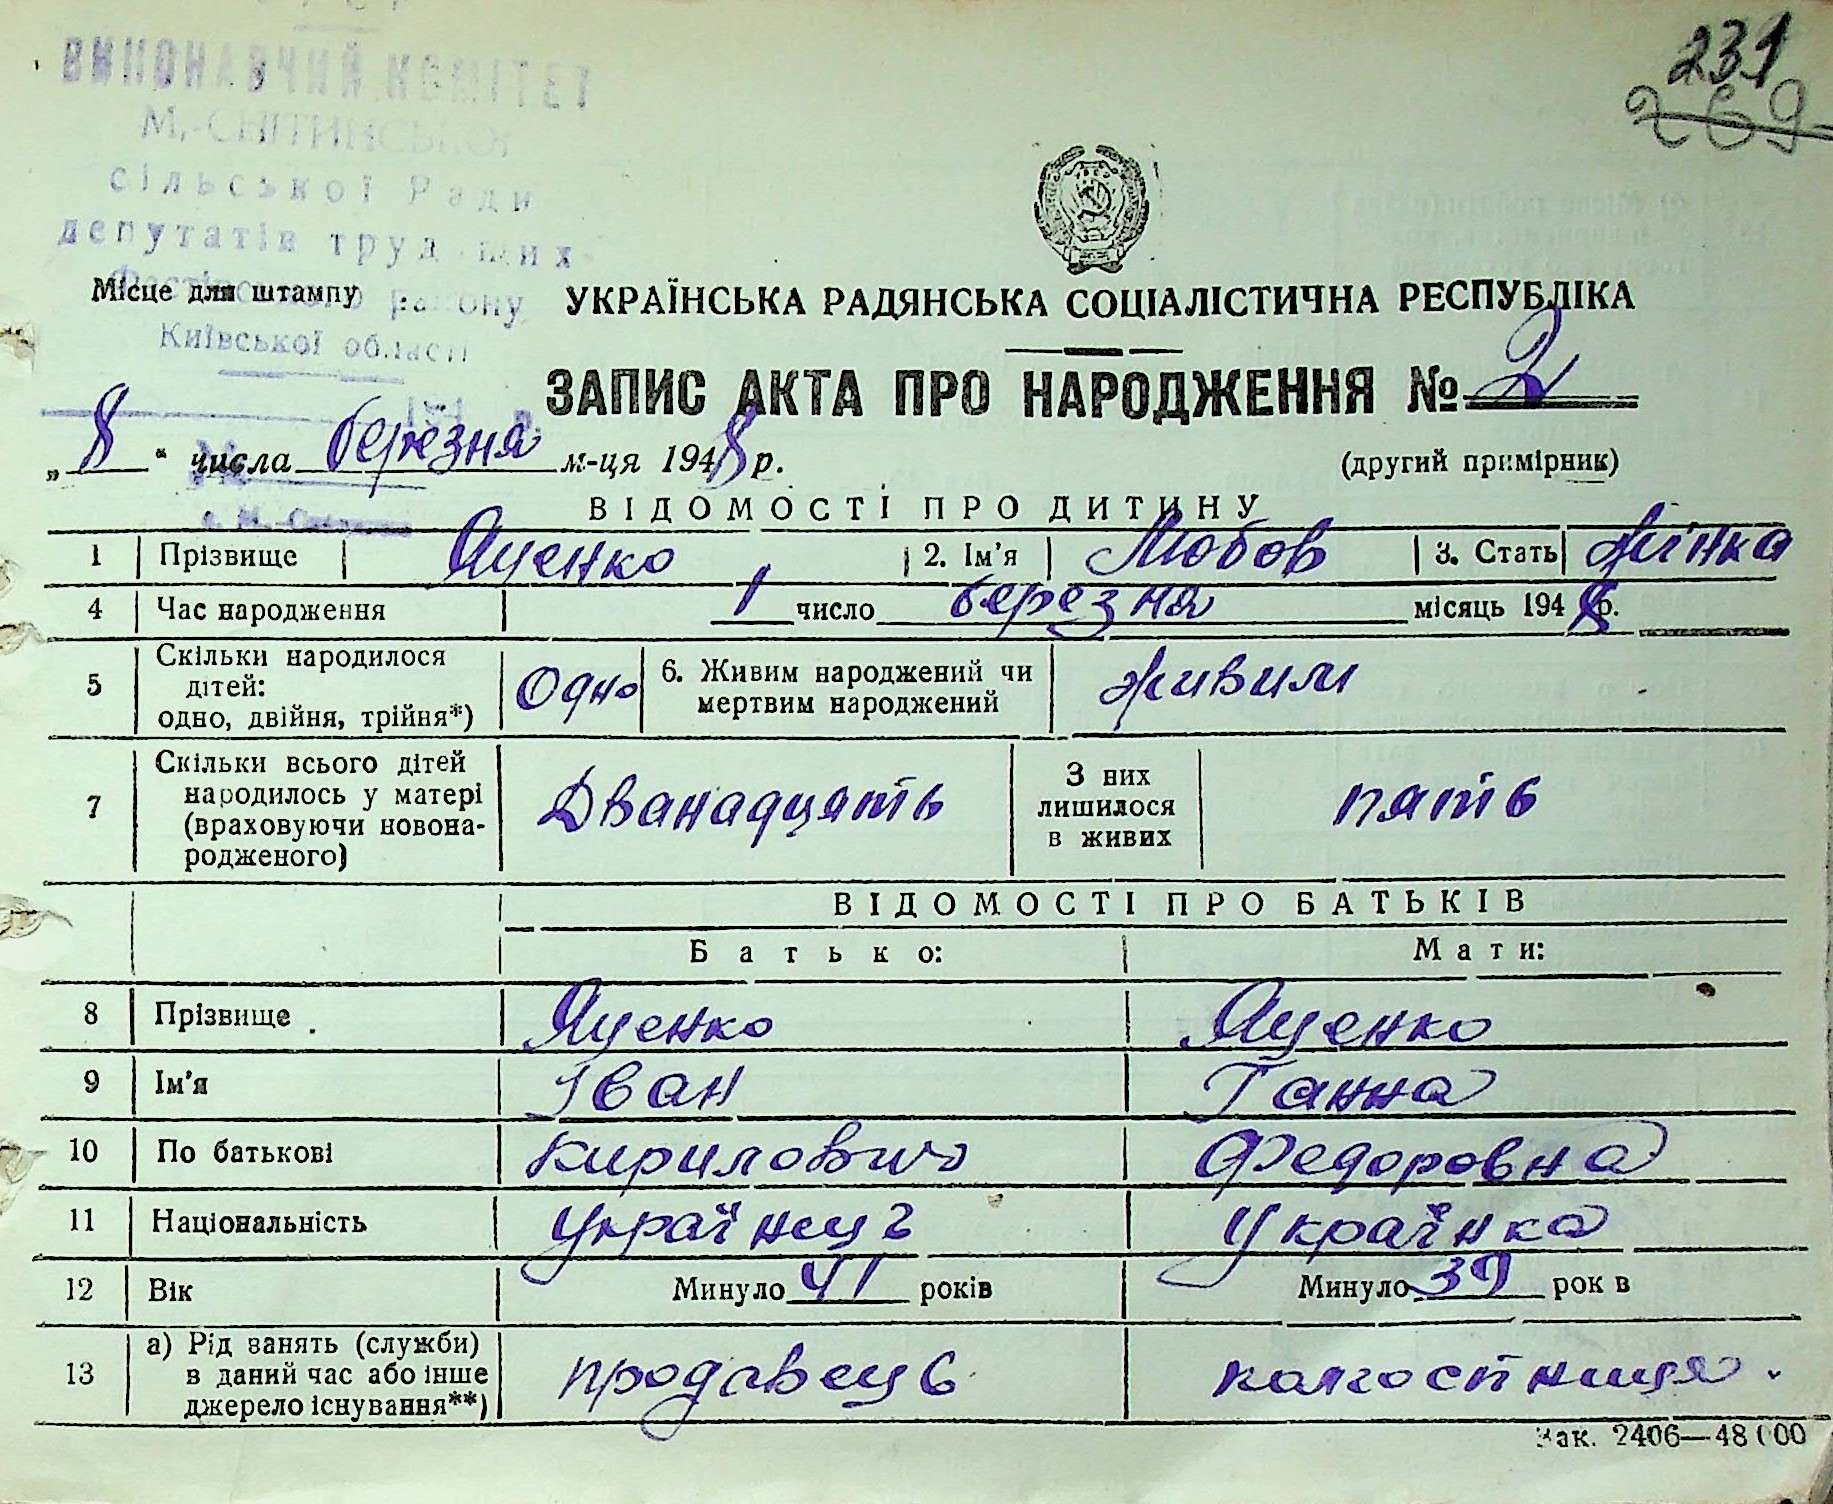 231
269
ВИКОНАВЧИЙ КОМІТЕТ
М.-СНІТИНСЬКОЇ
сільської Ради
депутатів трудящих
Фастівського району
Київської області
Місце для штампу
УКРАЇНСЬКА РАДЯНСЬКА СОЦІАЛІСТИЧНА РЕСПУБЛІКА
ЗАПИС АКТА ПРО НАРОДЖЕННЯ № 2
„8“ числа березня м-ця 1948 р.
(другий примірник)
ВІДОМОСТІ ПРО ДИТИНУ
1 Прізвище Яценко 2. Ім'я Любов 3. Стать жінка
4 Час народження 1 число березня місяць 1948 р.
5 Скільки народилося дітей: одно, двійня, трійня*) Одно 6. Живим народжений чи мертвим народжений живим
7 Скільки всього дітей народилось у матері (враховуючи новонародженого) Дванадцять З них лишилося в живих пять
ВІДОМОСТІ ПРО БАТЬКІВ
Батько: Мати:
8 Прізвище Яценко Яценко
9 Ім'я Іван Ганна
10 По батькові Кирилович Федоровна
11 Національність Українец Українка
12 Вік Минуло 41 років Минуло 39 рок в
13 а) Рід занять (служби) в даний час або інше джерело існування**) продавець колгостниця.
Зак. 2406—48000